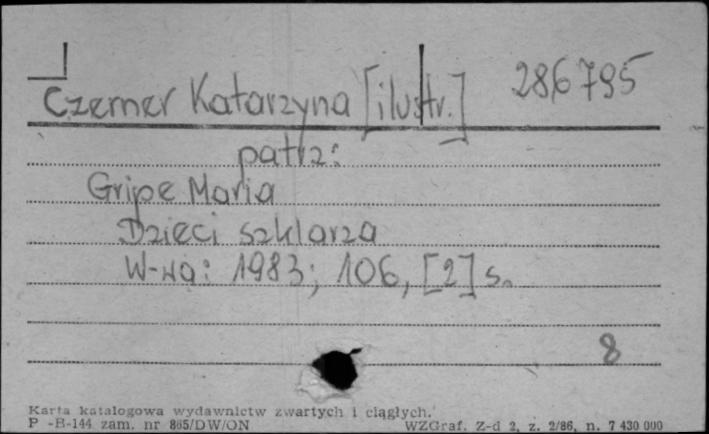 Czerner Katarzyna [ilustr.] 286795
patrz:
Gripe Maria
Dzieci szklarza
W-wa: 1983; 106, [2] s.
8
Karta katalogowa wydawnictw zwartych i ciągłych.
P -B-144 zam. nr 865/DW/ON WZGraf. Z-d 2, z. 2/86, n. 7 430 000